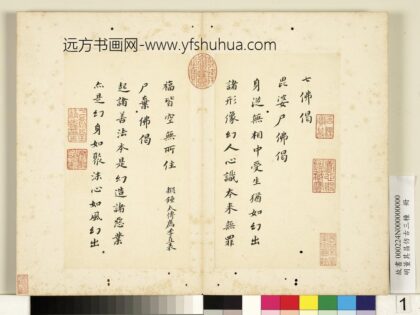 远方书画网-www.yfshuhua.com
七佛偈
毘婆尸佛偈
身從無相中受生猶如幻出
諸形像幻人心識本来無罪
福皆空無所住
尸棄佛偈
起諸善法本是幻造諸惡業
亦是幻身如聚沫心如風幻出
故書000224N000000000
明董其昌仿古三種 冊
1